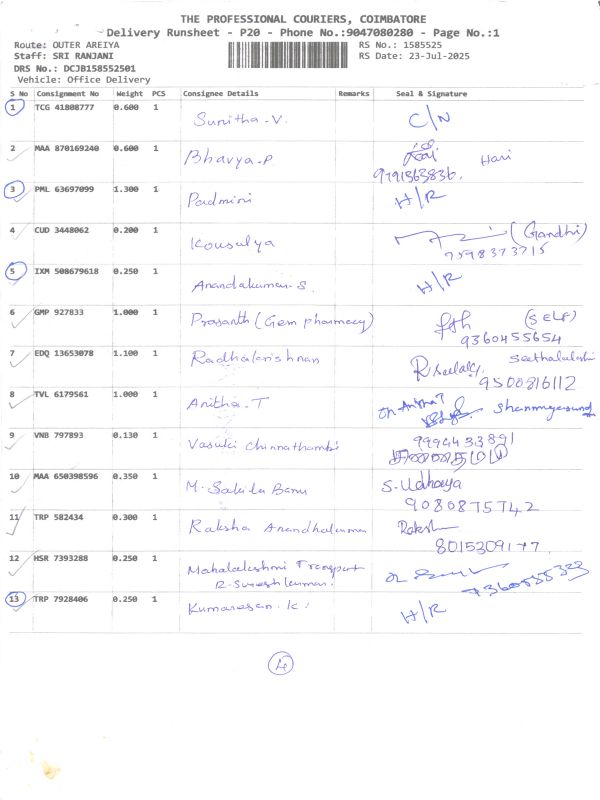 THE PROFESSIONAL COURIERS, COIMBATORE
Delivery Runsheet - P20 - Phone No.:9047080280 - Page No.:1
Route: OUTER AREIYA RS No.: 1585525
Staff: SRI RANJANI RS Date: 23-Jul-2025
DRS No.: DCJB158552501
Vehicle: Office Delivery
S No Consignment No Weight PCS Consignee Details Remarks Seal & Signature
1 TCG 41808777 0.600 1 Sunitha.V. C/N
2 MAA 870169240 0.600 1 Bhavya.P Hari
9791363836.
3 PML 63697099 1.300 1 Padmini H/R
4 CUD 3448062 0.200 1 Kousalya (Gandhi)
7598373715
5 IXM 508679618 0.250 1 Anandakumar.S. H/R
6 GMP 927833 1.000 1 Prasanth (Gem pharmacy) (SELF)
9360455654
7 EDQ 13653078 1.100 1 Radhakrishnan Seethalakshi
9500816112
8 TVL 6179561 1.000 1 Anitha.T
9 VNB 797893 0.130 1 Vasuki Chinnathambi 9994433891
10 MAA 650398596 0.350 1 M. Sakila Banu S. Udhaya
9080875742
11 TRP 582434 0.300 1 Raksha Anandhakumar Raksh
8015309177.
12 HSR 7393288 0.250 1 Mahalakshmi Transport
R. Sureshkumar. 9360555323
13 TRP 7928406 0.250 1 Kumaresan.K. H/R
4